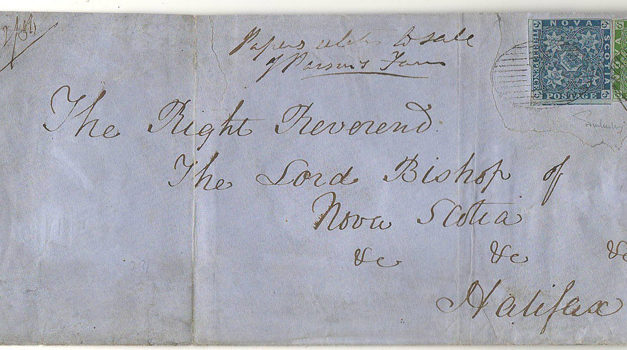 Papers to sale
of Farm
NOVA SCOTIA
POSTAGE
The Right Reverend
The Lord Bishop of
Nova Scotia
&c &c &c
Halifax